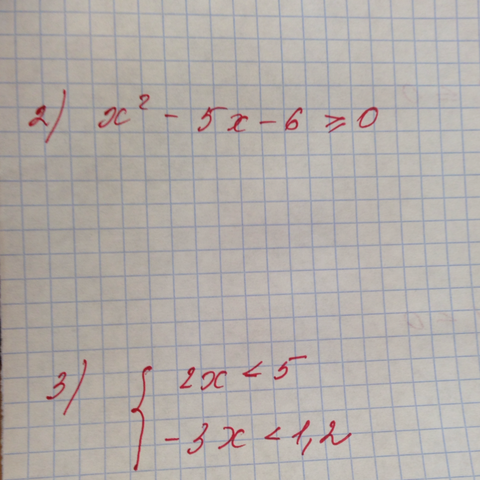 2) x² - 5x - 6 ⩾ 0
3) { 2x < 5
-3x < 1,2